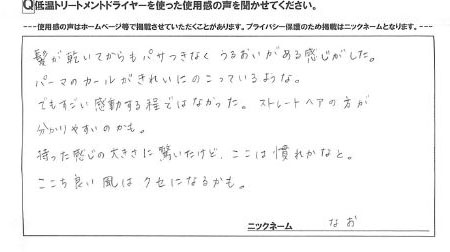 Q低温トリートメントドライヤーを使った使用感の声を聞かせてください。
---使用感の声はホームページ等で掲載させていただくことがあります。プライバシー保護のため掲載はニックネームとなります。---
髪が乾いてからもパサつきなく うるおいがある感じがした。
パーマのカールがきれいにのこっているような。
でもすごい感動する程ではなかった。ストレートヘアの方が
分かりやすいのかも。
持った感じの大きさに驚いたけど、ここは慣れかなと。
ここち良い風は クセになるかも。
ニックネーム なお